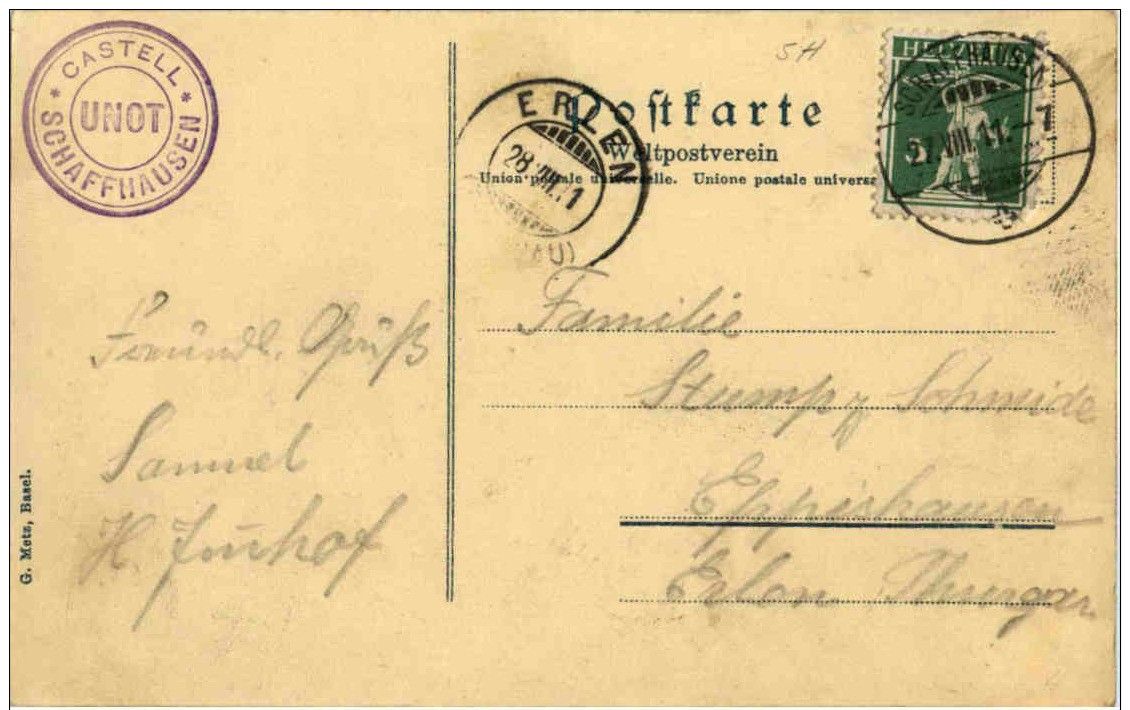 CASTELL
UNOT
SCHAFFHAUSEN
5H
Postkarte
Weltpostverein
Union postale universelle. Unione postale univers
ERLEN
28. VIII. 11
HELVETIA
5
SCHAFFHAUSEN
27. VIII. 11. - 7
Freundl. Grüß
Samuel
H. Imhof
Familie
Stump z Schmide
Eppishausen
Erlen Thurgau
G. Metz, Basel.